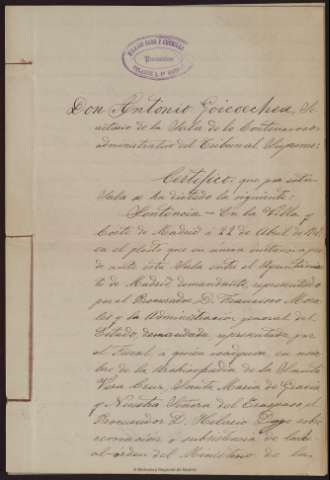 Procurador
Don Antonio Goicoechea, Se
cretario de la Sala de lo Contencioso
administrativo del Tribunal Supremo:
Certifico: que por esta
Sala se ha dictado la siguiente:
Sentencia = En la Villa y
Corte de Madrid á 22 de Abril de
en el pleito que en única instancia pen
de ante esta Sala entre el Ayuntamien
to de Madrid demandante, representado
por el Procurador D. Francisco Mora
les y la Administración general del
Estado, demandada, representada por
el Fiscal, a quien coadyuva, en nom
bre de la Archicofradía de la
Vera Cruz, María de Gracia
y Nuestra Señora del Traspaso, el
Procurador D. sobre
revocación ó subsistencia de la
al orden del Ministerio de la